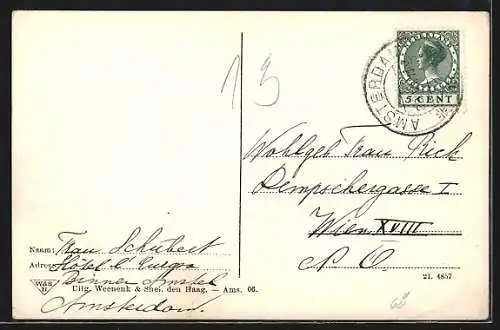 13
AMSTERDAM
5 CENT
Wohlgeb Frau Rick
Dempschergasse I
Wien XVIII
N. O.
Naam: Frau Schubert
Adres: Hôtel
Binnen Amstel
Amsterdam.
W&S
H
Uitg. Weenenk & Snel, den Haag. – Ams. 06.
21. 4857